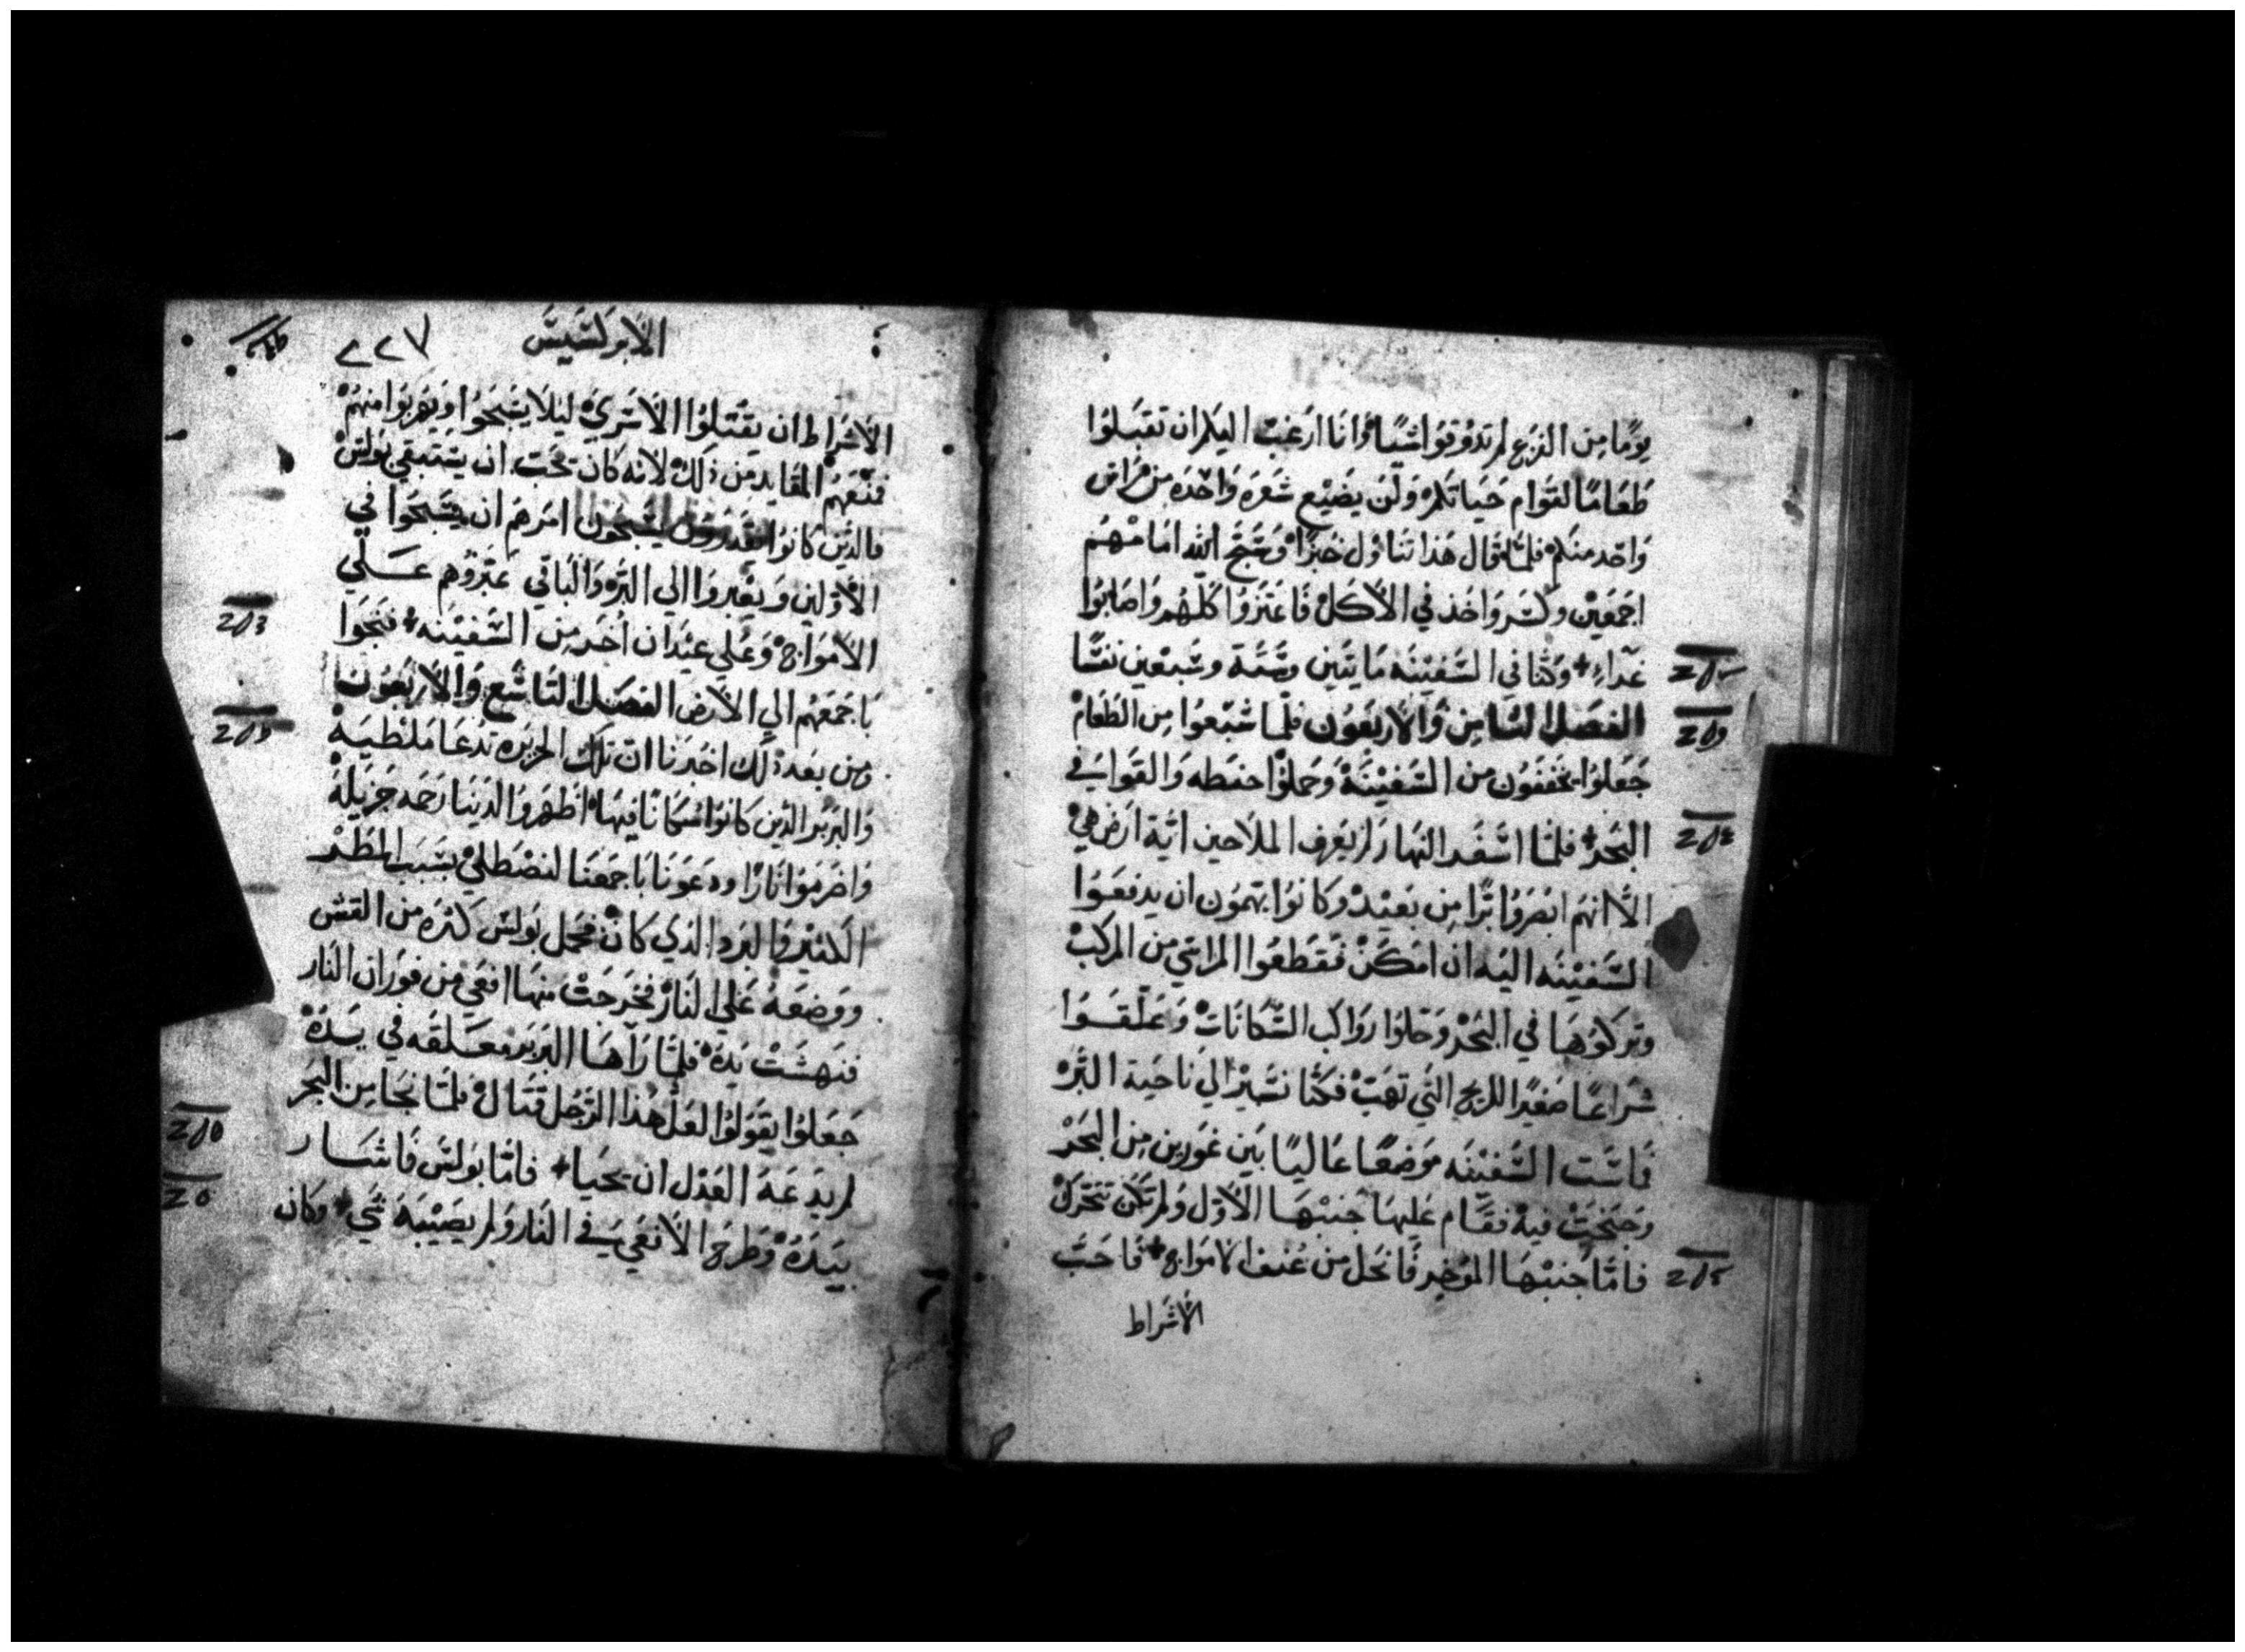 يومًا من الفزع لم تذوقوا شيًا وانا ارغب اليكم ان تقبلوا
طعامًا لقوام حياتكم ولن يضيع شعره واحده من راس
واحد منكم فلما قال هذا تناول خبزًا وسَبح الله امامهم
اجمعين وكسر واخذ في الاكل فاعتزوا كلهم واصابوا
غدآء + وكنا في السفينه مايتين وستة وسبعين نفسًا
الفصل الثامن والاربعون فلما شبعوا من الطعام
جعلوا يخففون من السفينة وحملوا حنطه والقوا في
البحر + فلما اسفر النهار لم يعرف الملاحين اية ارض هي
الا انهم ابصروا برًا من بعيد وكانوا يهمون ان يدفعوا
السفينه اليه ان امكن فقطعوا المراسي من المركب
وتركوها في البحر وحلوا رواكب السكانات وعلقوا
شراعًا صغيرًا للريح التي تهب فكنا نسير الي ناحية البر
فاست السفينه موضعًا عاليًا بين غورين من البحر
وجنحت فيه فقام عليها جنبها الاول ولم تكن تتحرك
فاما جنبها الموخر فانحل من عنف الامواج + فاحب
الاشراط
الابركسيس
٢٢٧
الاشراط ان يقتلوا الاسري ليلا يسبحوا ويهربوا منهم
فمنعهم القايد من ذلك لانه كان يحب ان يستبقي بولس
فالذين كانوا يقدرون يسبحون امرهم ان يسبحوا في
الاولين ويعبروا الي البر والباقي عبروهم علي
الامواج وعلي عيدان اخر من السفينه + فنجوا
باجمعهم الي الارض الفصل التاسع والاربعون
ومن بعد ذلك اخبرنا ان تلك الجزيره تدعا ملطية
والبربر الذين كانوا سكانًا فيها اظهروا لدينا رحمه جزيله
واضرموا نارًا ودعونا باجمعنا لنصطلي بسبب المطر
الكثير والبرد الذي كان فحمل بولس كثره من القش
ووضعه علي النار فخرجت منها افعي من فوران النار
فنهشت يده فلما رآها البربر معلقه في يده
جعلوا يقولوا لعل هذا الرجل قتال فلما نجا من البحر
لم يدعه العدل ان يحيا + فاما بولس فاشار
بيده وطرح الافعي في النار ولم يصيبه شي + وكان